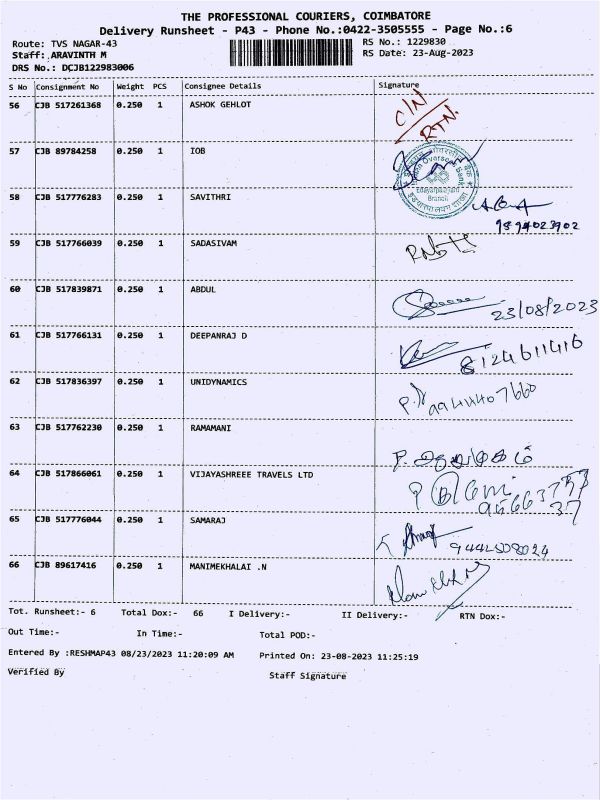 THE PROFESSIONAL COURIERS, COIMBATORE
Delivery Runsheet - P43 - Phone No.:0422-3505555 - Page No.:6
Route: TVS NAGAR-43 RS No.: 1229830
Staff: ARAVINTH M RS Date: 23-Aug-2023
DRS No.: DCJB122983006
S No Consignment No Weight PCS Consignee Details Signature
56 CJB 517261368 0.250 1 ASHOK GEHLOT C/N
RTN.
57 CJB 89784258 0.250 1 IOB
Indian Overseas Bank
Branch
58 CJB 517776283 0.250 1 SAVITHRI
9894023902
59 CJB 517766039 0.250 1 SADASIVAM
60 CJB 517839871 0.250 1 ABDUL
23/08/2023
61 CJB 517766131 0.250 1 DEEPANRAJ D
8124611416
62 CJB 517836397 0.250 1 UNIDYNAMICS
63 CJB 517762230 0.250 1 RAMAMANI
64 CJB 517866061 0.250 1 VIJAYASHREEE TRAVELS LTD
65 CJB 517776044 0.250 1 SAMARAJ
9442508024
66 CJB 89617416 0.250 1 MANIMEKHALAI .N
Tot. Runsheet:- 6 Total Dox:- 66 I Delivery:- II Delivery:- RTN Dox:-
Out Time:- In Time:- Total POD:-
Entered By :RESHMAP43 08/23/2023 11:20:09 AM Printed On: 23-08-2023 11:25:19
Verified By Staff Signature